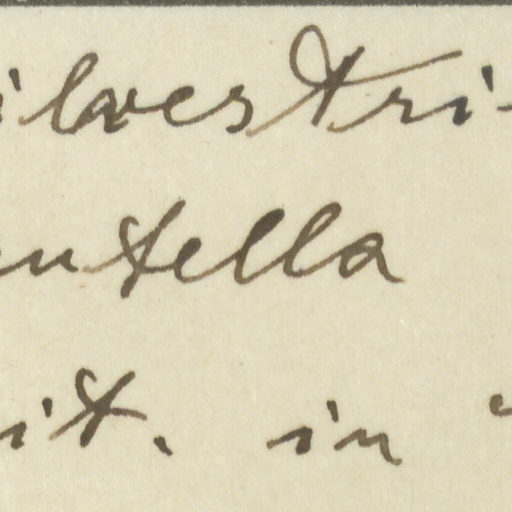 ilvestri-
entella
it. in